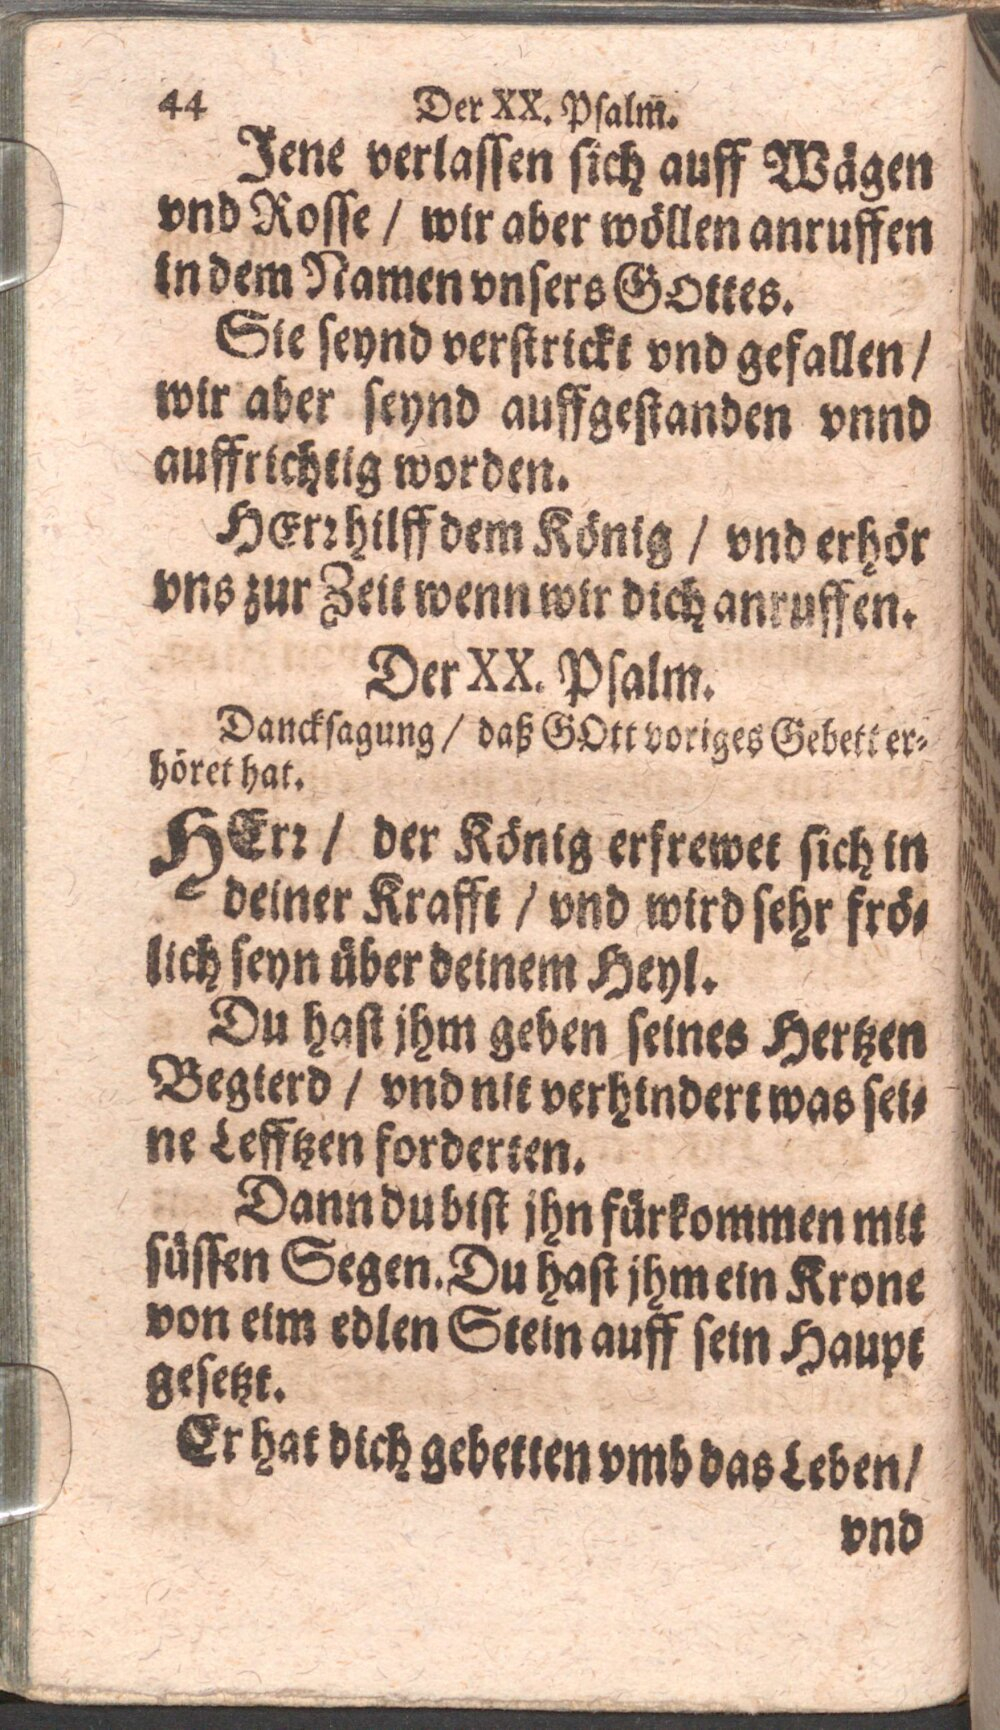 44 Der XX. Psalm̄.
Jene verlassen sich auff Wägen
vnd Rosse / wir aber wöllen anruffen
in dem Namen vnsers GOttes.
Sie seynd verstrickt vnd gefallen /
wir aber seynd auffgestanden vnnd
auffrichtig worden.
HErr hilff dem König / vnd erhör
vns zur Zeit wenn wir dich anruffen.
Der XX. Psalm.
Dancksagung / daß GOtt voriges Gebett er-
höret hat.
HErr / der König erfrewet sich in
deiner Krafft / vnd wird sehr frö-
lich seyn über deinem Heyl.
Du hast jhm geben seines Hertzen
Begierd / vnd nit verhindert was sei-
ne Lefftzen forderten.
Dann du bist jhn fürkommen mit
süssen Segen. Du hast jhm ein Krone
von eim edlen Stein auff sein Haupt
gesetzt.
Er hat dich gebetten vmb das Leben /
vnd